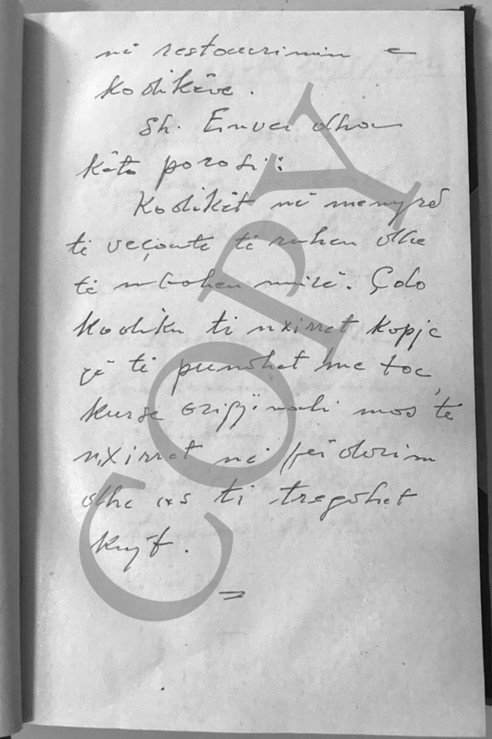 në restaurimin e
kodikëve.
Sh. Enver dha
këto porosi:
Kodikët në mënyrë
të veçantë të ruhen dhe
të mbahen mirë. Çdo
kodiku ti nxirret kopje
që të punohet me to,
kurse origjinali mos të
nxirret në përdorim
dhe as ti tregohet
kujt.
COPY